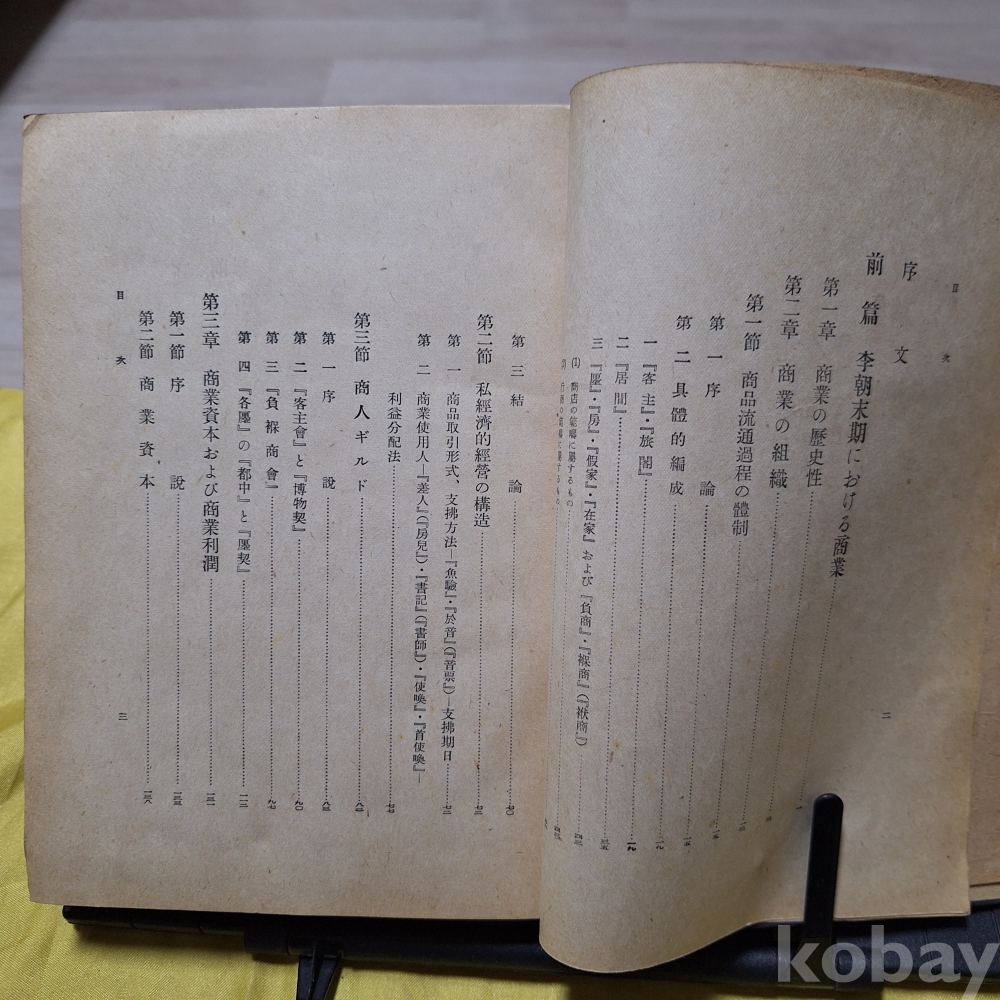 目次
序文
前篇 李朝末期における商業
第一章 商業の歴史性
第二章 商業の組織
第一節 商品流通過程の體制
第一 序論
第二 具體的編成
一 『客主』・『旅閣』
二 『居間』
三 『廛』・『房』・『假家』・『在家』および『負商』・『褓商』(『袱商』)
(1) 商店の範疇に屬するもの
二
第三 結論 七〇
第二節 私經濟的經營の構造 七三
第一 商品取引形式、支拂方法―『魚驗』・『於音』(『音票』)―支拂期日 七三
第二 商業使用人―『差人』(『房兒』)・『書記』(『書師』)・『使喚』・『首使喚』―
利益分配法 七七
第三節 商人ギルド
第一 序說 八三
第二 『客主會』と『博物契』 九〇
第三 『負褓商會』 九七
第四 『各廛』の『都中』と『廛契』 一二三
第三章 商業資本および商業利潤 一三一
第一節 序說
第二節 商業資本 一三八
目次
三
kobay